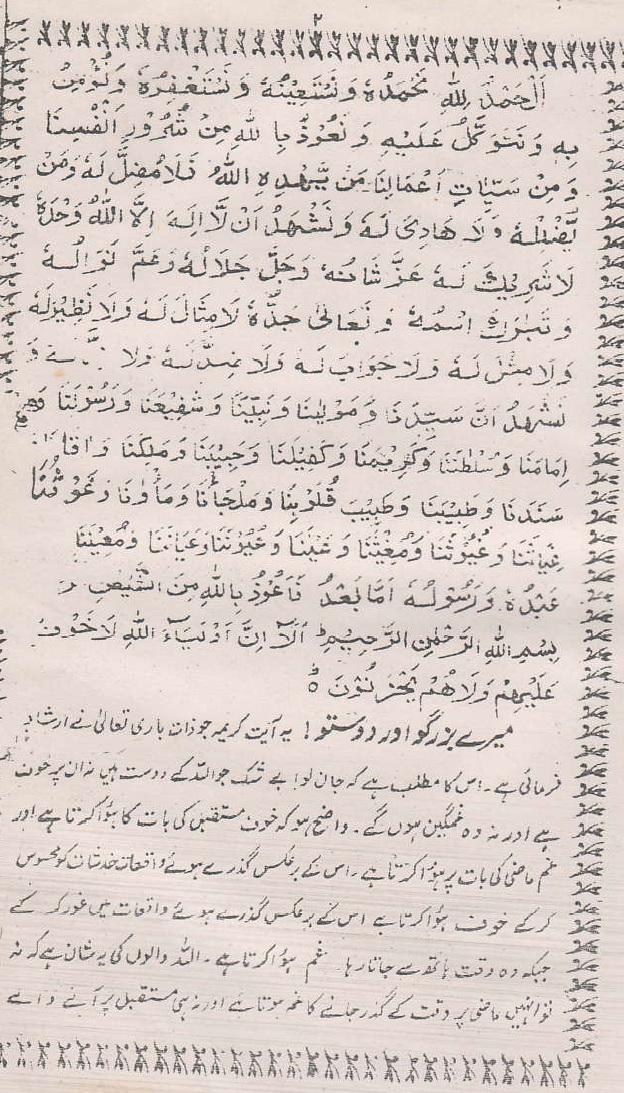 ۲
اَلْحَمْدُ لِلّٰہِ نَحْمَدُہٗ وَنَسْتَعِیْنُہٗ وَنَسْتَغْفِرُہٗ وَنُؤْمِنُ
بِہٖ وَنَتَوَکَّلُ عَلَیْہِ وَنَعُوْذُ بِاللّٰہِ مِنْ شُرُوْرِ اَنْفُسِنَا
وَمِنْ سَیِّاٰتِ اَعْمَالِنَا مَنْ یَّہْدِہِ اللّٰہُ فَلَا مُضِلَّ لَہٗ وَمَنْ
یُّضْلِلْہُ فَلَا ہَادِیَ لَہٗ وَنَشْہَدُ اَنْ لَّا اِلٰہَ اِلَّا اللّٰہُ وَحْدَہٗ
لَا شَرِیْکَ لَہٗ عَزَّ شَانُہٗ وَجَلَّ جَلَالُہٗ وَعَمَّ نَوَالُہٗ
وَتَبَارَکَ اسْمُہٗ وَتَعَالٰی جَدُّہٗ لَا مِثَالَ لَہٗ وَلَا نَظِیْرَ لَہٗ
وَلَا مِثْلَ لَہٗ وَلَا جَوَابَ لَہٗ وَلَا نِدَّ لَہٗ وَلَا وَ
نَشْہَدُ اَنَّ سَیِّدَنَا وَمَوْلٰنَا وَنَبِیَّنَا وَشَفِیْعَنَا وَرَسُوْلَنَا وَ
اِمَامَنَا وَسُلْطٰنَنَا وَکَرِیْمَنَا وَکَفِیْلَنَا وَحَبِیْبَنَا وَمَلِکَنَا
سَنَدَنَا وَطَبِیْبَنَا وَطَبِیْبَ قُلُوْبِنَا وَمَلْجَانَا وَمَاْوٰنَا وَغَوْثَنَا
غِیَاثَنَا وَغُیُوْثَنَا وَمُغِیْثَنَا وَعَیْنَنَا وَعُیُوْنَنَا وَعَیَانَنَا وَمُعِیْنَنَا
عَبْدُہٗ وَرَسُوْلُہٗ اَمَّا بَعْدُ فَاَعُوْذُ بِاللّٰہِ مِنَ
بِسْمِ اللّٰہِ الرَّحْمٰنِ الرَّحِیْمِ اَلَآ اِنَّ اَوْلِیَآءَ اللّٰہِ لَا خَوْفٌ
عَلَیْہِمْ وَلَا ہُمْ یَحْزَنُوْنَ ہ
میرے بزرگو اور دوستو! یہ آیت کریمہ جو ذات باری تعالیٰ نے ارشاد
فرمائی ہے۔ اس کا مطلب ہے کہ جان لو! بے شک جو اللہ کے دوست ہیں نہ ان پر خوف
ہے اور نہ وہ غمگین ہوں گے۔ واضح ہو کہ خوف مستقبل کی بات کا ہؤا کرتا ہے اور
غم ماضی کی بات پر ہؤا کرتا ہے۔ اس کے برعکس گذرے ہوئے واقعات خدشات کو محسوس
کر کے خوف ہؤا کرتا ہے اس کے برعکس گذرے ہوئے واقعات میں غور کر کے
جبکہ وہ وقت ہاتھ سے جاتا رہا غم ہؤا کرتا ہے۔ اللہ والوں کی یہ شان ہے کہ نہ
تو انہیں ماضی پر وقت کے گذر جانے کا غم ہوتا ہے اور نہ ہی مستقبل پر آنے والے